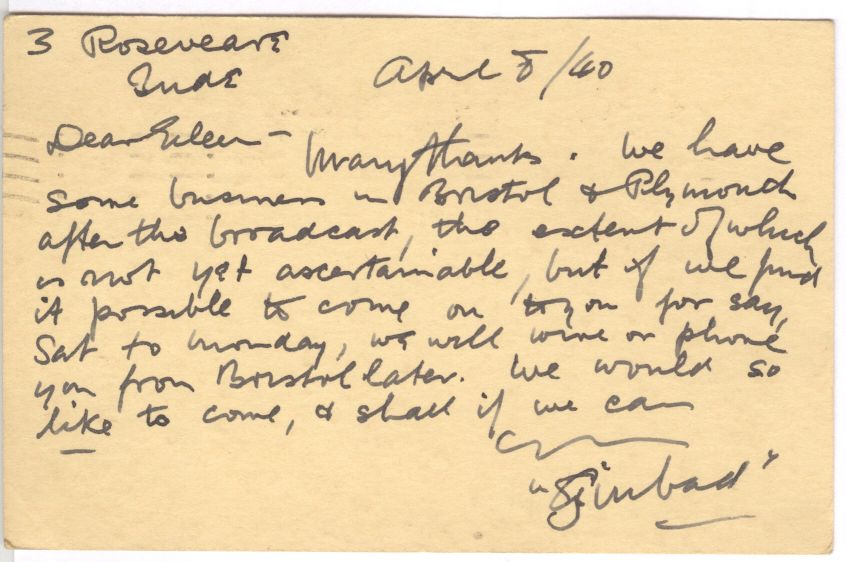 3 Roseveare
Bude
April 8/40
Dear Eileen –
Many thanks. We have
some business in Bristol & Plymouth
after the broadcast, the extent of which
is not yet ascertainable, but if we find
it possible to come on to you for say,
Sat to Monday, we will wire or phone
you from Bristol later. We would so
like to come, & shall if we can
"Sinbad"